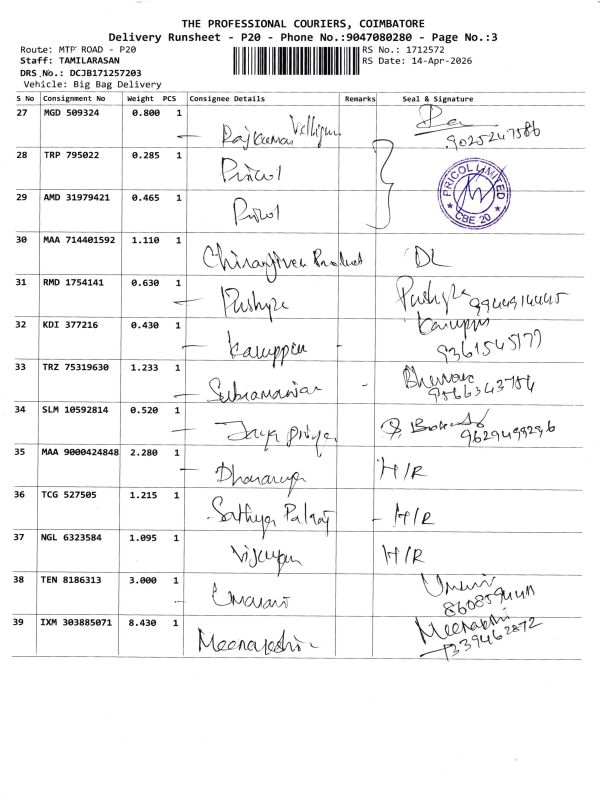 THE PROFESSIONAL COURIERS, COIMBATORE
Delivery Runsheet - P20 - Phone No.:9047080280 - Page No.:3
Route: MTP ROAD - P20
RS No.: 1712572
Staff: TAMILARASAN
RS Date: 14-Apr-2026
DRS No.: DCJB171257203
Vehicle: Big Bag Delivery
S No Consignment No Weight PCS Consignee Details Remarks Seal & Signature
27 MGD 509324 0.800 1
Rajkumar
9025247586
28 TRP 795022 0.285 1
Pricol
PRICOL LIMITED
CBE 20
29 AMD 31979421 0.465 1
Pricol
30 MAA 714401592 1.110 1
Chiranjivee Product DL
31 RMD 1754141 0.630 1
Pushpa Pushpa
32 KDI 377216 0.430 1
Karuppu
33 TRZ 75319630 1.233 1
34 SLM 10592814 0.520 1
Jaya Priya
35 MAA 9000424848 2.280 1
H/R
36 TCG 527505 1.215 1
Sathya Palraj - H/R
37 NGL 6323584 1.095 1
H/R
38 TEN 8186313 3.000 1
39 IXM 303885071 8.430 1
Meenakshi Meenakshi
7339462872